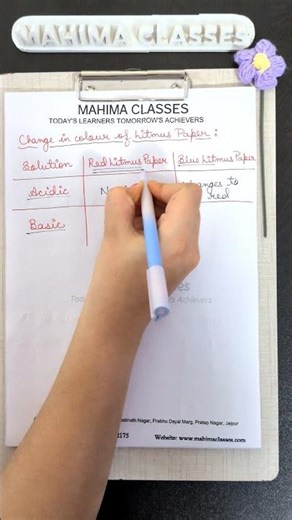 MAHIMA CLASSES
MAHIMA CLASSES
TODAY'S LEARNERS TOMORROW'S ACHIEVERS
Change in colour of Litmus Paper :
Solution Red Litmus Paper Blue Litmus Paper
Acidic changes to
red
Basic
Achievers
Nagar, Prabhu Dayal Marg, Pratap Nagar, Jaipur
Website: www.mahimaclasses.com